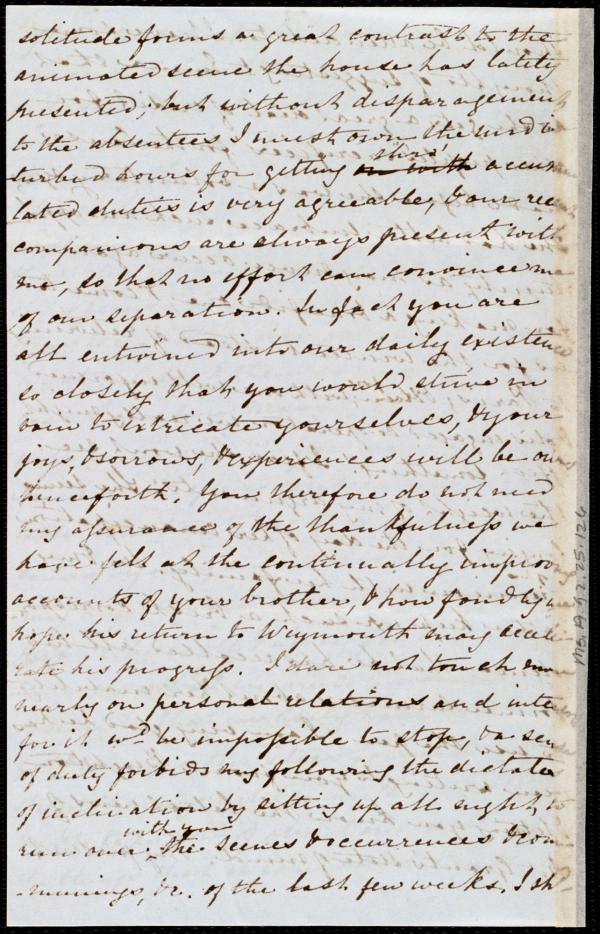 solitude forms a great contrast to the
animated scene the house has lately
presented; but without disparagement
to the absentees I must own the undis
turbed hours for getting on with thro' accumu
lated duties is very agreeable, & our rec
companions are always present with
me, so that no effort can convince me
of our separation. In fact you are
all entwined into our daily existence
so closely that you would strive in
vain to extricate yourselves, & your
joys, & sorrows, & experiences will be ours
henceforth. You therefore do not need
my assurance of the thankfulness we
have felt at the continually improving
accounts of your brother, & how fondly we
hope his return to Weymouth may accele
rate his progress. I dare not touch more
nearly on personal relations and inte
for it wd be impossible to stop, & a sense
of duty forbids my following the dictates
of inclination by sitting up all night, to
run over with you the scenes & occurrences & com
-munings, &c. of the last few weeks. I sh
Ms. A. 9.2.25.126